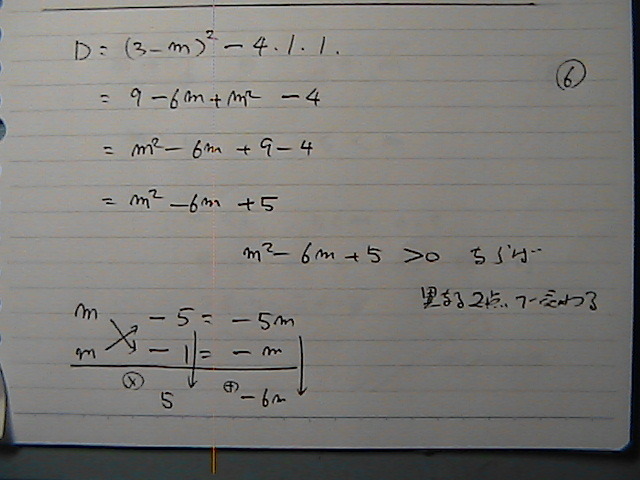 D = (3-m)² - 4.1.1.
⑥
= 9 - 6m + m² - 4
= m² - 6m + 9 - 4
= m² - 6m + 5
m² - 6m + 5 > 0 ならば
異なる2点で交わる
m - 5 = -5m
m - 1 = - m
ⓧ 5 ⊕ -6m